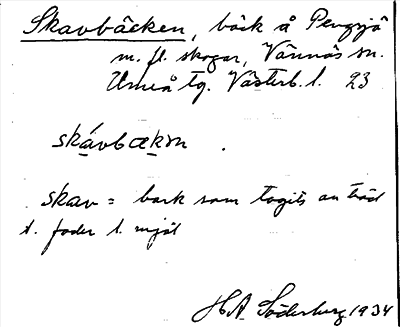 Skavbäcken, bäck å Pengsjö
m. fl. skogar, Vännäs sn.
Umeå tg. Västerb. l. 23
skávbækȩn
skav = bark som togits av träd
t. foder l. mjöl
H.A. Söderberg 1934